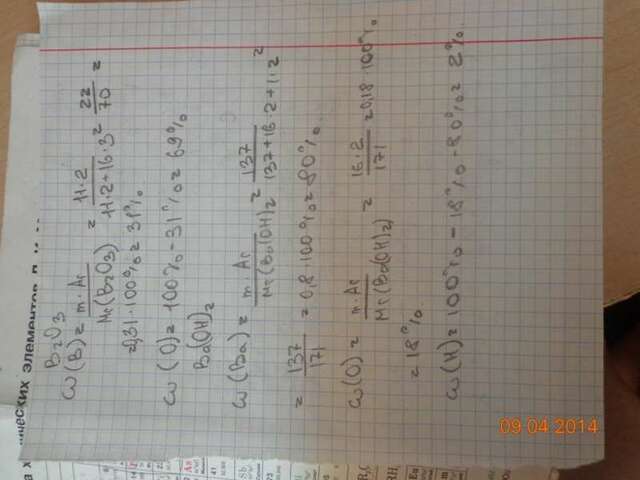 B2O3
ω(B) = n·Ar / Mr(B2O3) = 11·2 / 11·2+16·3 = 22 / 70 =
=0,31·100% = 31%
ω(O) = 100% - 31% = 69%
Ba(OH)2
ω(Ba) = n·Ar / Mr(Ba(OH)2 = 137 / 137+16·2+1·2 =
= 137 / 171 = 0,8·100% = 80%
ω(O) = n·Ar / Mr(Ba(OH)2) = 16·2 / 171 = 0,18·100%
= 18%
ω(H) = 100% - 18% - 80% = 2%
ических элементов
09 04 2014